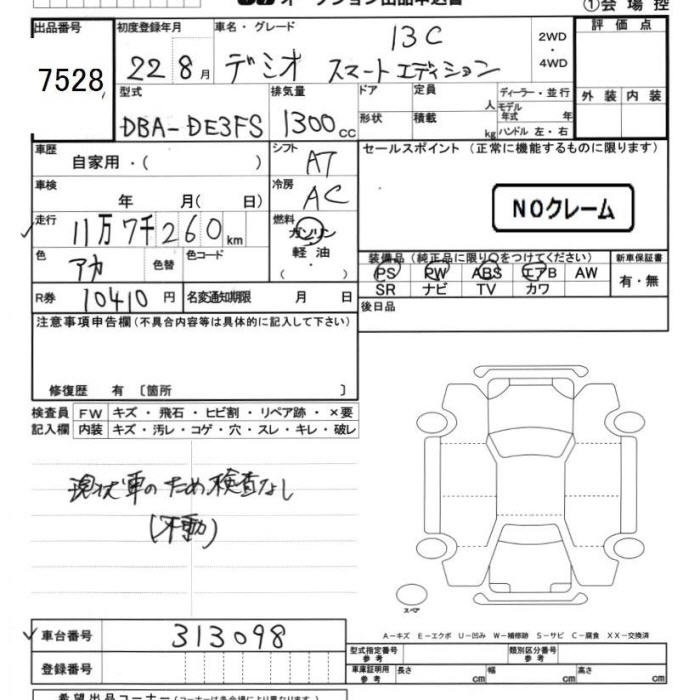 オークション出品申込書
①会場控
出品番号
7528
初度登録年月
22 8月
車名・グレード
13C
デミオ スマートエディション
2WD
・
4WD
評価点
外装 内装
型式
DBA-DE3FS
排気量
1300cc
ドア
定員
人
形状
積載
kg
ディーラー・並行
モデル年式 年
ハンドル 左・右
車歴
自家用・( )
シフト
AT
セールスポイント(正常に機能するものに限ります)
車検
年 月( 日)
冷房
AC
NOクレーム
走行
11万7千260km
燃料
ガソリン
軽油
・
色
アカ
色替
色コード
装備品(純正品に限り○をつけてください)
PS PW ABS エアB AW
SR ナビ TV カワ
新車保証書
有・無
R券
10410円
名変通知期限 月 日
後日品
注意事項申告欄(不具合内容等は具体的に記入して下さい)
修復歴 有 〔箇所 〕
検査員 FW キズ・飛石・ヒビ割・リペア跡・×要
記入欄 内装 キズ・汚レ・コゲ・穴・スレ・キレ・破レ
現状車のため検査なし
(不動)
スペア
A-キズ E-エクボ U-凹み W-補修跡 S-サビ C-腐食 XX-交換済
車台番号
313098
登録番号
型式指定番号
参考
類別区分番号
参考
車庫証明用
参考
長さ cm 幅 cm 高さ cm
希望出品コーナー(コーナーは各会場により異なります)